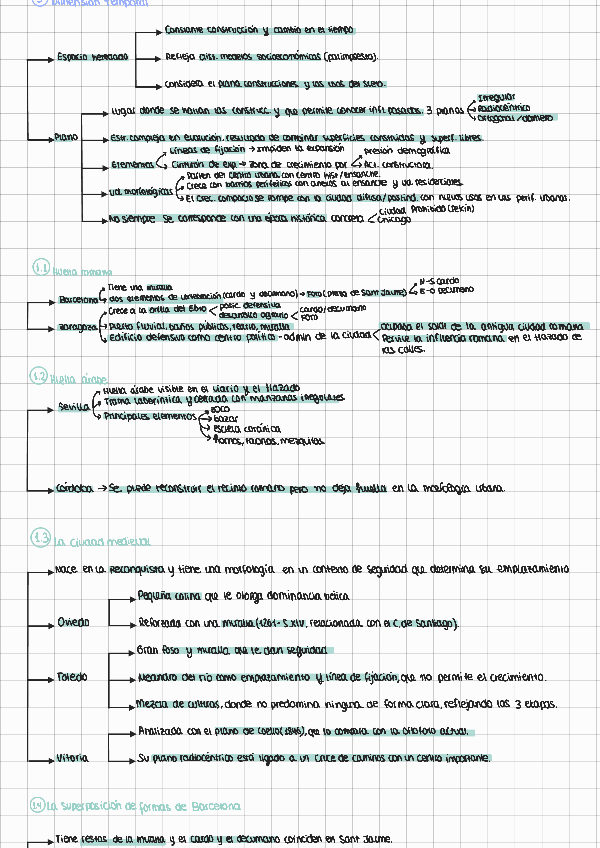 Dimensión temporal
Constante construcción y cambio en el tiempo
Espacio heredado
Refleja dist. modelos socioeconómicos (palimpsesto).
Considera el plano construcciones y los usos del suelo.
Plano
Lugar donde se hallan las construcc. y que permite conocer infl. pasadas. 3 planos
Irregular
Radiocéntrico
Ortogonal / damero
Estr. compleja en evolución, resultado de combinar superficies construidas y superf. libres.
Elementos
Líneas de fijación → impiden la expansión
Cinturón de exp → zona de crecimiento por
Presión demográfica
Act. constructora.
Ud. morfológicas
Parten del centro urbano con centro hist/ensanche.
Crece con barrios periféricos con anexos al ensanche y ud. residenciales.
El crec. compacto se rompe con la ciudad difusa/postind. con nuevos usos en las perif. urbanas.
No siempre se corresponde con una época histórica concreta
Ciudad Prohibida (Pekín)
Chicago
1.1 Huella romana
Barcelona
Tiene una muralla
dos elementos de vertebración (cardo y decumano) → Foro (Plaza de Sant Jaume)
N-S cardo
E-O decumano
Zaragoza
Crece a la orilla del Ebro
posic. defensiva
desarrollo agrario
cardo/decumano
Foro
Puerto fluvial, baños públicos, teatro, muralla
Edificio defensivo como centro político - admin de la ciudad
ocupaba el solar de la antigua ciudad romana
Pervive la influencia romana en el trazado de
las calles.
1.2 Huella árabe
Sevilla
Huella árabe visible en el viario y el trazado
Trama laberíntica y cerrada con manzanas irregulares
Principales elementos
zoco
bazar
Escuela coránica
Hornos, tahonas, mezquitas.
Córdoba → Se puede reconstruir el recinto romano pero no deja huella en la morfología urbana.
1.3 La ciudad medieval
Nace en la Reconquista y tiene una morfología en un contexto de seguridad que determina su emplazamiento
Oviedo
Pequeña colina que le otorga dominancia bélica
Reforzada con una muralla (1261 - S.XIV, relacionada con el C. de Santiago).
Toledo
Gran foso y muralla que le dan seguridad
Meandro del río como emplazamiento y línea de fijación, que no permite el crecimiento.
Mezcla de culturas, donde no predomina ninguna de forma clara, reflejando las 3 etapas.
Vitoria
Analizada con el plano de Coello (1848), que lo compara con la ortofoto actual.
Su plano radiocéntrico está ligado a un cruce de caminos con un centro importante.
1.4 La superposición de formas de Barcelona
Tiene restos de la muralla y el cardo y el decumano coinciden en Sant Jaume.